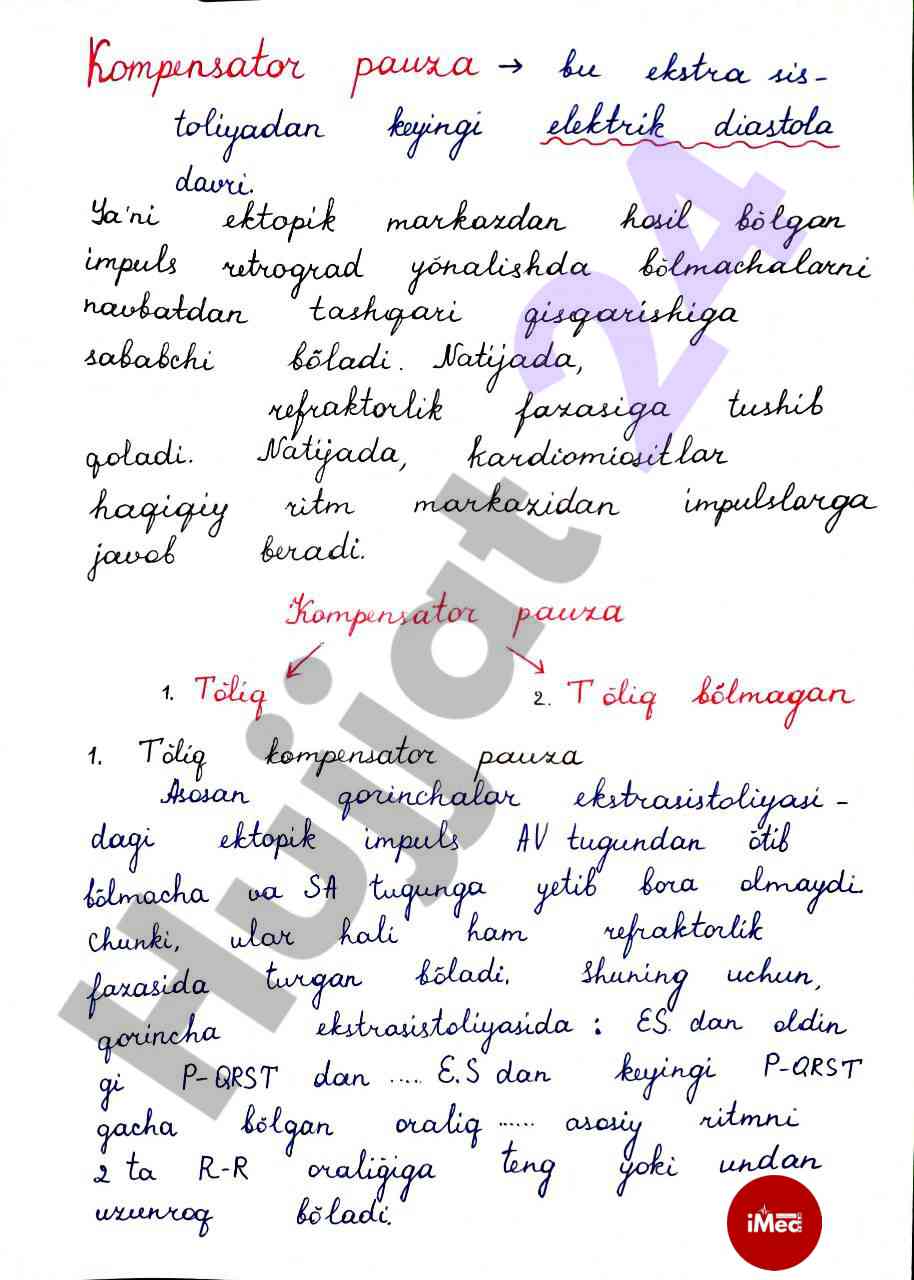 Kompensator pauza → bu ekstra sis-
toliyadan keyingi elektrik diastola
davri.
Ya'ni ektopik markazdan hosil bõlgan
impuls retrograd yõnalishda bõlmachalarni
navbatdan tashqari qisqarishiga
sababchi bõladi. Natijada,
refraktorlik fazasiga tushib
qoladi. Natijada, kardiomiositlar
haqiqiy ritm markazidan impulslarga
javob beradi.
Kompensator pauza
1. Tõliq 2. Tõliq bõlmagan
1. Tõliq kompensator pauza
Asosan qorinchalar ekstrasistoliyasi-
dagi ektopik impuls AV tugundan õtib
bõlmacha va SA tugunga yetib bora olmaydi
chunki, ular hali ham refraktorlik
fazasida turgan bõladi. Shuning uchun,
qorincha ekstrasistoliyasida : ES. dan oldin
gi P-QRST dan .... E.S dan keyingi P-QRST
gacha bõlgan oraliq ...... asosiy ritmni
2 ta R-R oraliğiga teng yoki undan
uzunroq bõladi.
Hujjat 24
iMed